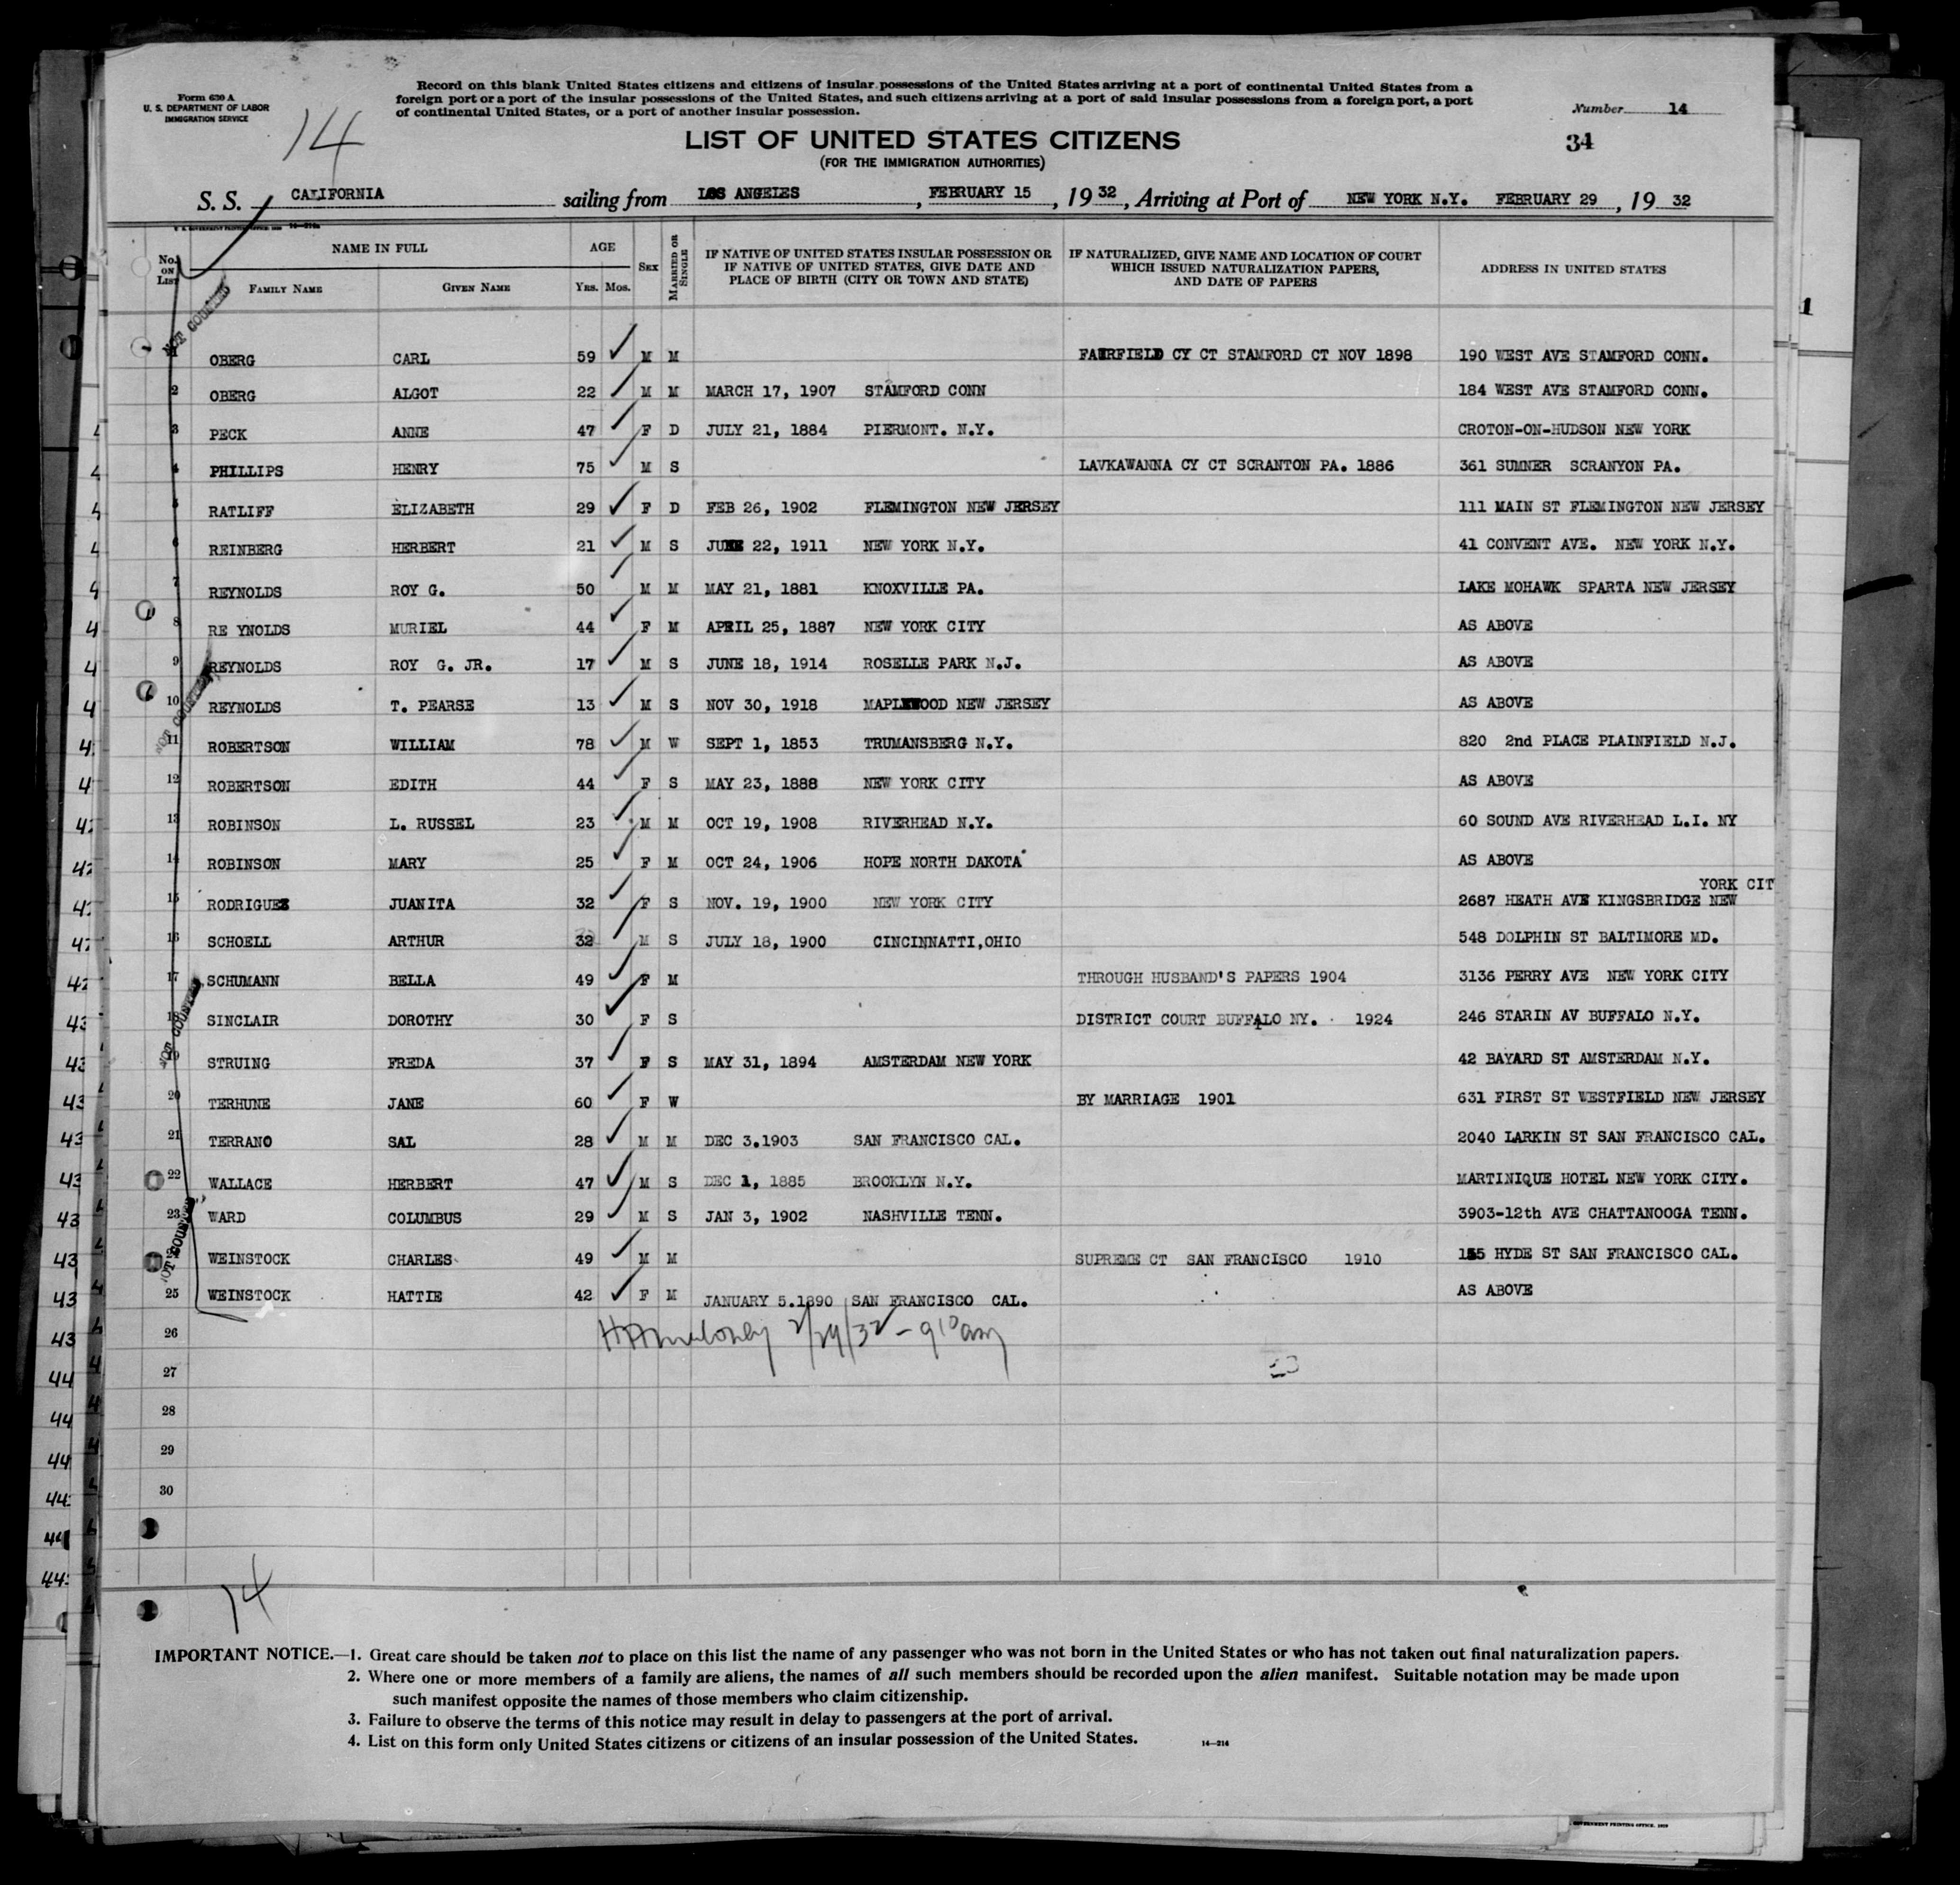 Form 630 A
U. S. DEPARTMENT OF LABOR
IMMIGRATION SERVICE
14
Record on this blank United States citizens and citizens of insular possessions of the United States arriving at a port of continental United States from a
foreign port or a port of the insular possessions of the United States, and such citizens arriving at a port of said insular possessions from a foreign port, a port
of continental United States, or a port of another insular possession.
Number 14
LIST OF UNITED STATES CITIZENS
34
(FOR THE IMMIGRATION AUTHORITIES)
S. S. CALIFORNIA sailing from LOS ANGELES, FEBRUARY 15, 1932, Arriving at Port of NEW YORK N.Y. FEBRUARY 29, 1932
No. ON LIST NAME IN FULL FAMILY NAME GIVEN NAME AGE YRS. MOS. SEX MARRIED OR SINGLE IF NATIVE OF UNITED STATES INSULAR POSSESSION OR IF NATIVE OF UNITED STATES, GIVE DATE AND PLACE OF BIRTH (CITY OR TOWN AND STATE) IF NATURALIZED, GIVE NAME AND LOCATION OF COURT WHICH ISSUED NATURALIZATION PAPERS, AND DATE OF PAPERS ADDRESS IN UNITED STATES
NOT COUNTED
1 OBERG CARL 59 M M FAIRFIELD CY CT STAMFORD CT NOV 1898 190 WEST AVE STAMFORD CONN.
2 OBERG ALGOT 22 M M MARCH 17, 1907 STAMFORD CONN 184 WEST AVE STAMFORD CONN.
3 PECK ANNE 47 F D JULY 21, 1884 PIERMONT. N.Y. CROTON-ON-HUDSON NEW YORK
4 PHILLIPS HENRY 75 M S LAVKAWANNA CY CT SCRANTON PA. 1886 361 SUMNER SCRANYON PA.
5 RATLIFF ELIZABETH 29 F D FEB 26, 1902 FLEMINGTON NEW JERSEY 111 MAIN ST FLEMINGTON NEW JERSEY
6 REINBERG HERBERT 21 M S JUNE 22, 1911 NEW YORK N.Y. 41 CONVENT AVE. NEW YORK N.Y.
7 REYNOLDS ROY G. 50 M M MAY 21, 1881 KNOXVILLE PA. LAKE MOHAWK SPARTA NEW JERSEY
8 RE YNOLDS MURIEL 44 F M APRIL 25, 1887 NEW YORK CITY AS ABOVE
9 REYNOLDS ROY G. JR. 17 M S JUNE 18, 1914 ROSELLE PARK N.J. AS ABOVE
10 REYNOLDS T. PEARSE 13 M S NOV 30, 1918 MAPLEWOOD NEW JERSEY AS ABOVE
11 ROBERTSON WILLIAM 78 M W SEPT 1, 1853 TRUMANSBERG N.Y. 820 2nd PLACE PLAINFIELD N.J.
12 ROBERTSON EDITH 44 F S MAY 23, 1888 NEW YORK CITY AS ABOVE
13 ROBINSON L. RUSSEL 23 M M OCT 19, 1908 RIVERHEAD N.Y. 60 SOUND AVE RIVERHEAD L.I. NY
14 ROBINSON MARY 25 F M OCT 24, 1906 HOPE NORTH DAKOTA AS ABOVE
YORK CIT
15 RODRIGUEZ JUANITA 32 F S NOV. 19, 1900 NEW YORK CITY 2687 HEATH AVE KINGSBRIDGE NEW
16 SCHOELL ARTHUR 32 M S JULY 18, 1900 CINCINNATTI,OHIO 548 DOLPHIN ST BALTIMORE MD.
17 SCHUMANN BELLA 49 F M THROUGH HUSBAND'S PAPERS 1904 3136 PERRY AVE NEW YORK CITY
18 SINCLAIR DOROTHY 30 F S DISTRICT COURT BUFFALO NY. 1924 246 STARIN AV BUFFALO N.Y.
19 STRUING FREDA 37 F S MAY 31, 1894 AMSTERDAM NEW YORK 42 BAYARD ST AMSTERDAM N.Y.
20 TERHUNE JANE 60 F W BY MARRIAGE 1901 631 FIRST ST WESTFIELD NEW JERSEY
21 TERRANO SAL 28 M M DEC 3.1903 SAN FRANCISCO CAL. 2040 LARKIN ST SAN FRANCISCO CAL.
22 WALLACE HERBERT 47 M S DEC 1, 1885 BROOKLYN N.Y. MARTINIQUE HOTEL NEW YORK CITY.
23 WARD COLUMBUS 29 M S JAN 3, 1902 NASHVILLE TENN. 3903-12th AVE CHATTANOOGA TENN.
WEINSTOCK CHARLES 49 M M SUPREME CT SAN FRANCISCO 1910 155 HYDE ST SAN FRANCISCO CAL.
25 WEINSTOCK HATTIE 42 F M JANUARY 5.1890 SAN FRANCISCO CAL. AS ABOVE
26 2/29/32 - 9 10 am
27
28
29
30
14
IMPORTANT NOTICE.—1. Great care should be taken not to place on this list the name of any passenger who was not born in the United States or who has not taken out final naturalization papers.
2. Where one or more members of a family are aliens, the names of all such members should be recorded upon the alien manifest. Suitable notation may be made upon
such manifest opposite the names of those members who claim citizenship.
3. Failure to observe the terms of this notice may result in delay to passengers at the port of arrival.
4. List on this form only United States citizens or citizens of an insular possession of the United States. 14—214